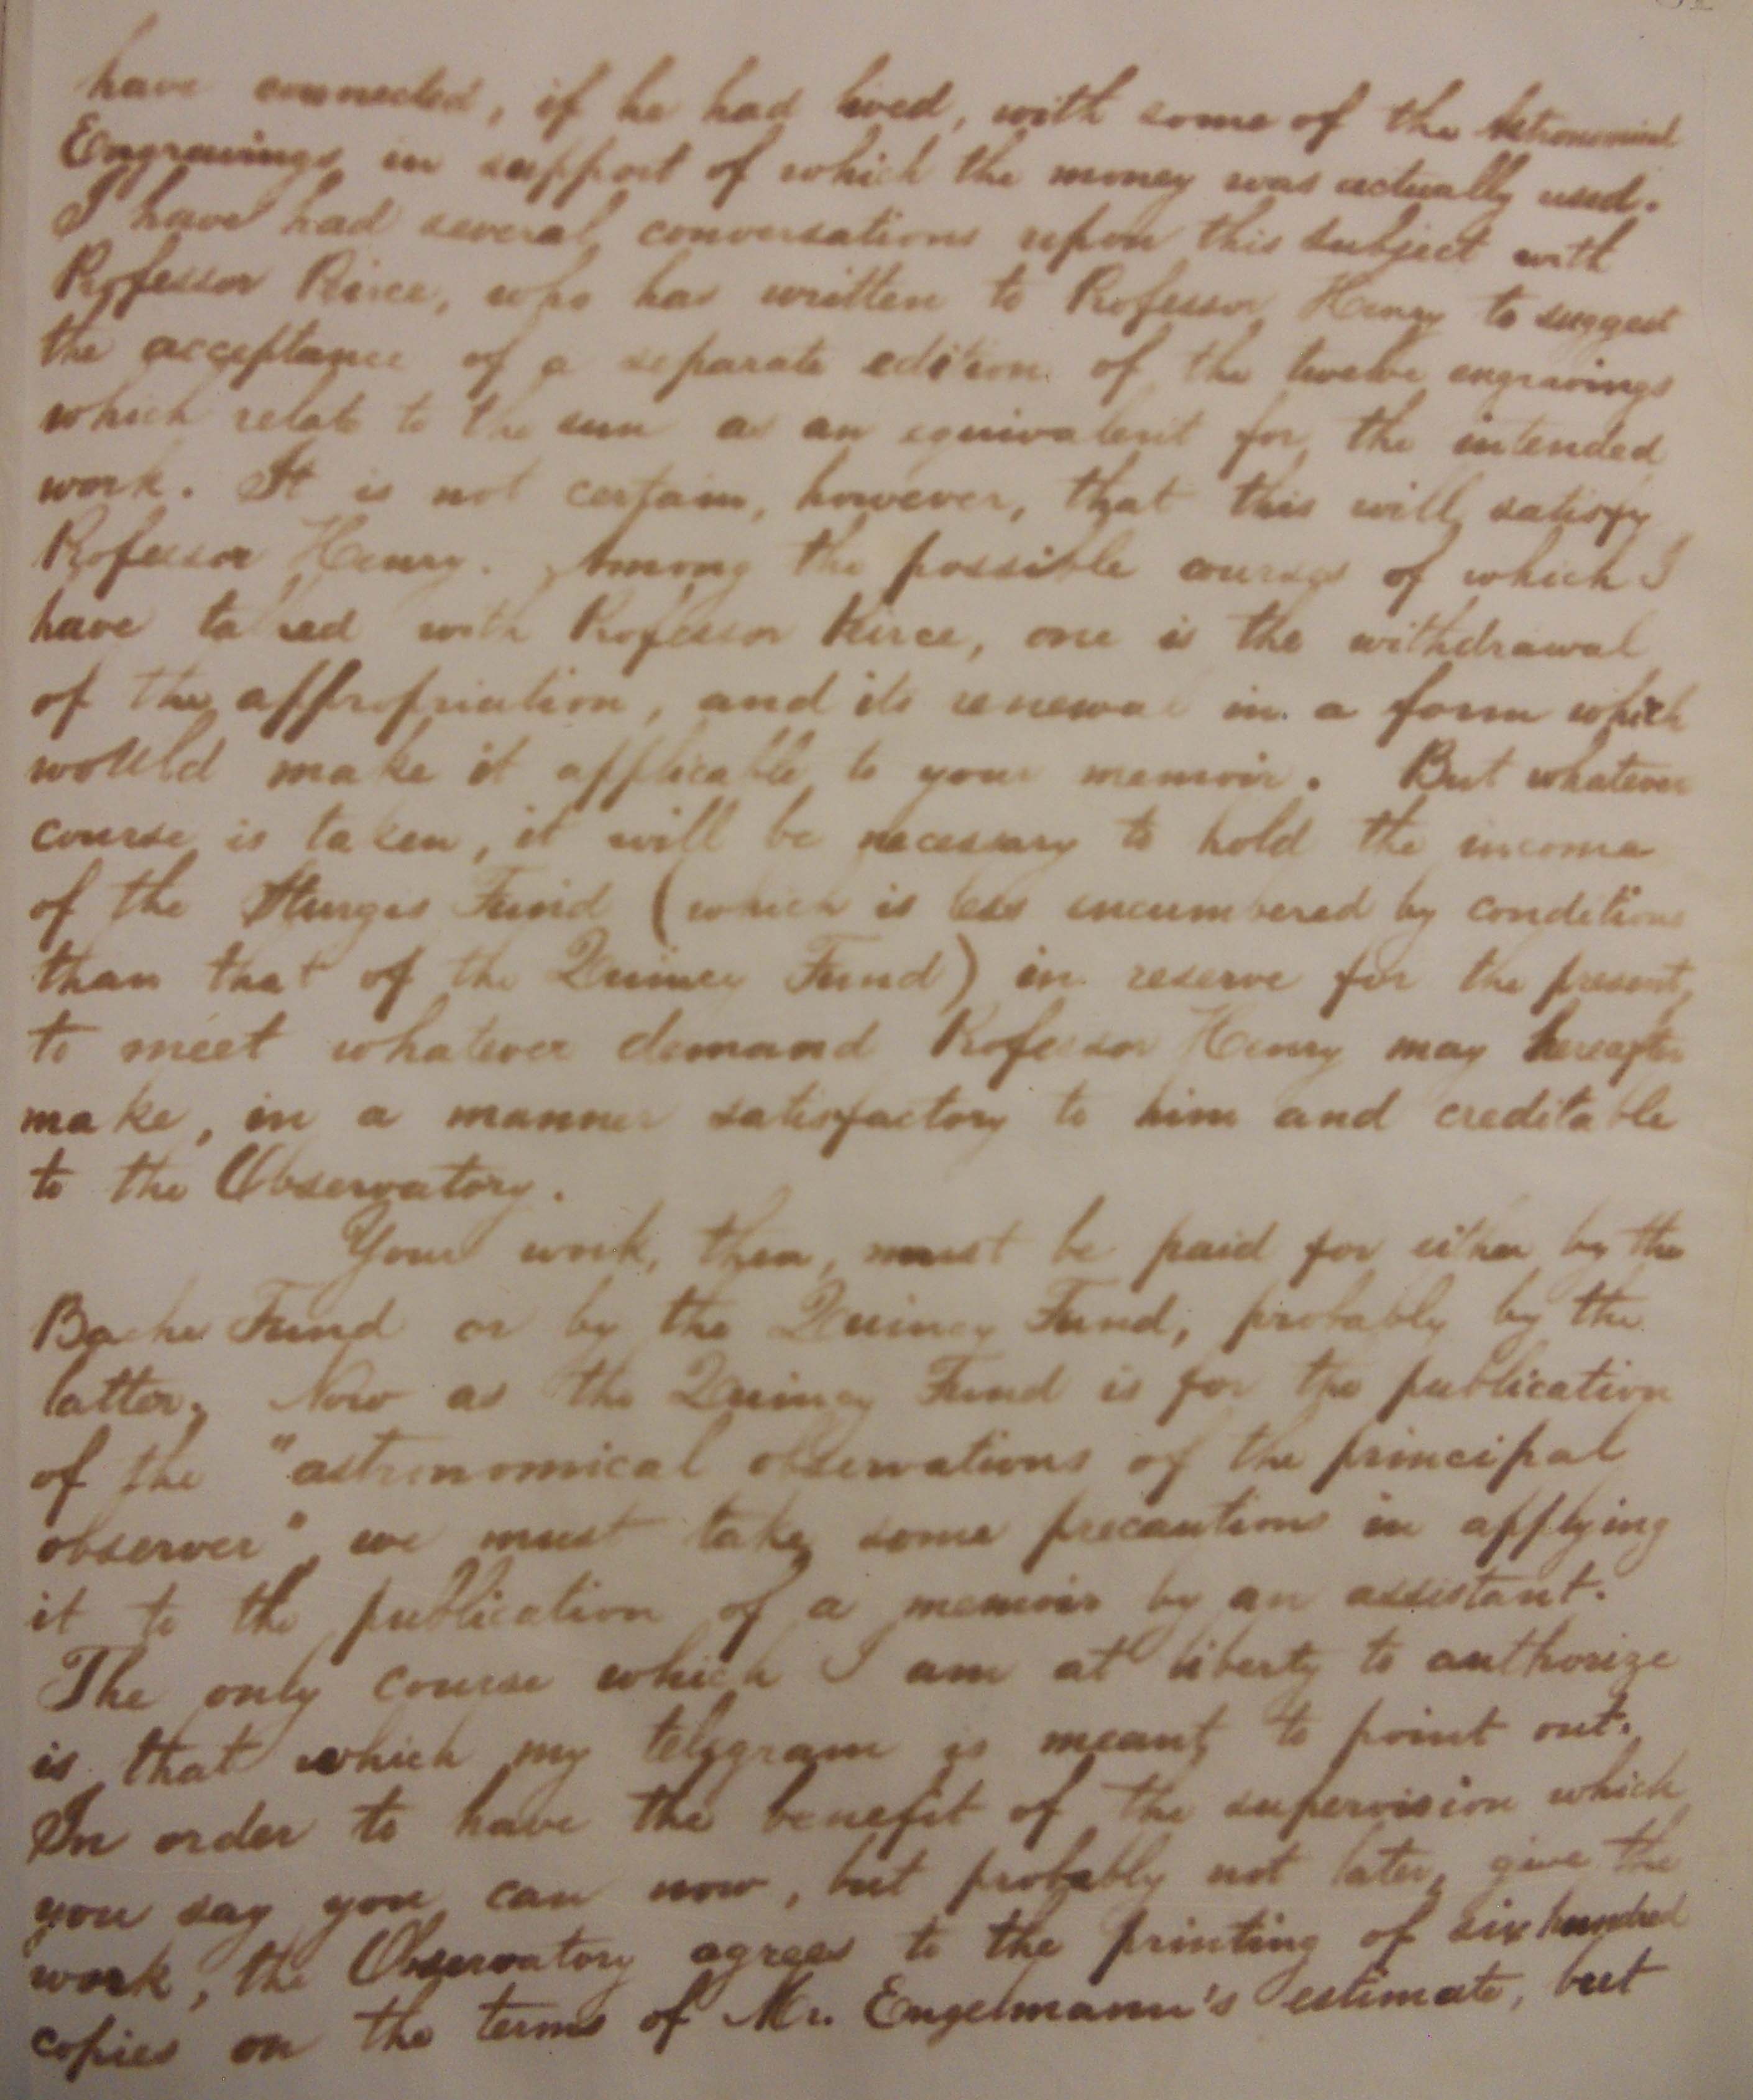 have connected, if he had lived, with some of the Astronomical
Engravings in support of which the money was actually used.
I have had several conversations upon this subject with
Professor Peirce, who has written to Professor Henry to suggest
the acceptance of a separate edition of the twelve engravings
which relate to the sun as an equivalent for the intended
work. It is not certain, however, that this will satisfy
Professor Henry. Among the possible courses of which I
have talked with Professor Peirce, one is the withdrawal
of the appropriation, and its renewal in a form which
would make it applicable to your memoir. But whatever
course is taken, it will be necessary to hold the income
of the Sturgis Fund (which is less encumbered by conditions
than that of the Quincy Fund) in reserve for the present,
to meet whatever demand Professor Henry may hereafter
make, in a manner satisfactory to him and creditable
to the Observatory.
Your work, then, must be paid for either by the
Bache Fund or by the Quincy Fund, probably by the
latter. Now as the Quincy Fund is for the publication
of the "astronomical observations of the principal
observer" we must take some precautions in applying
it to the publication of a memoir by an assistant.
The only course which I am at liberty to authorize
is that which my telegram is meant to point out.
In order to have the benefit of the supervision which
you say you can now, but probably not later, give the
work, the Observatory agrees to the printing of six hundred
copies on the terms of Mr. Engelmann's estimate, but